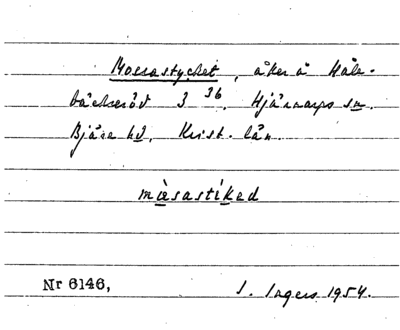 Mossastycket, åker å Häls-
bäckaröd 3 36. Hjärnarps sn.
Bjäre hd. Krist. län.
mɷ̀sastiked
Nr 6146, I. Ingers 1954.